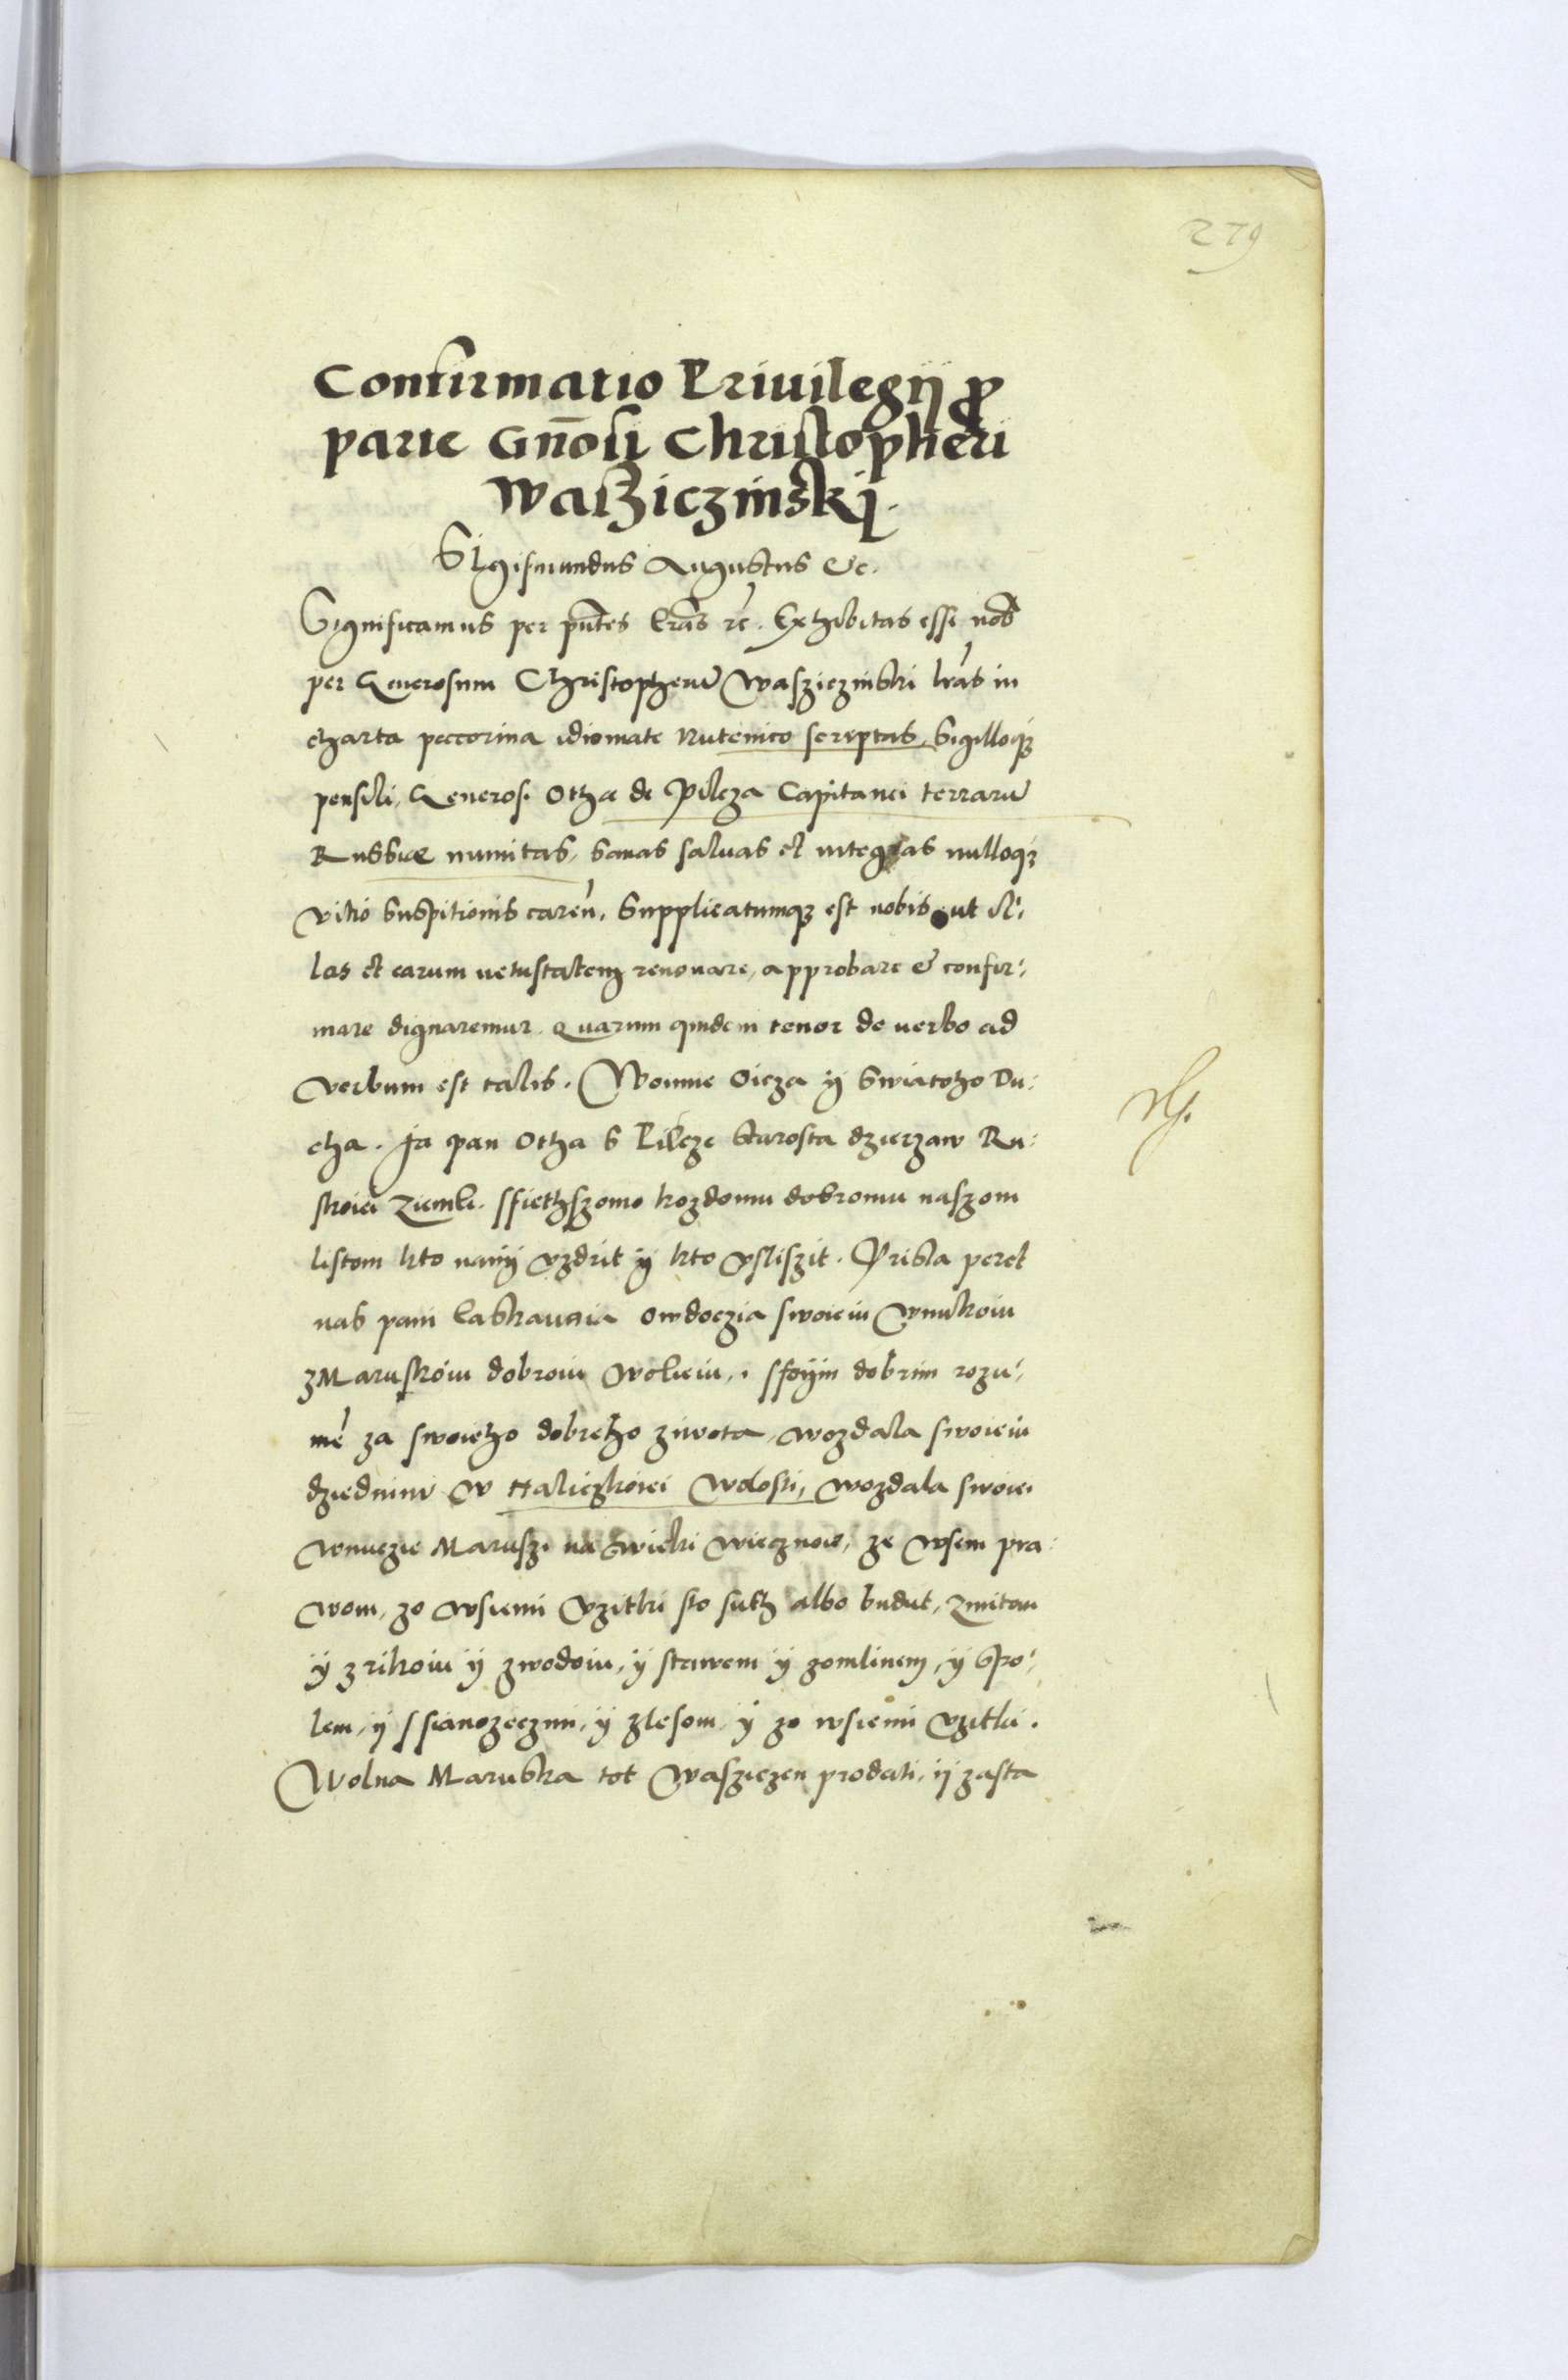 279
Confirmatio Priuilegij pro
parte Gnosi Christopheri
Waszieczinskj.
Sigismundus Augustus &c.
Significamus per pntes lras rc. Exhibitas esse nob
per Generosum Christopherum Wasziczinski lras in
charta peccorina idiomate Rutenico scriptas, Sigilloqz
pensili, Generosi Otha de Pilcza Capitanei terraru
Russiae munitas, sanas saluas et integras nulloqz
vitio suspitionis caren, Supplicatumqz est nobis ut il,
las et earum uetustatem renouare, approbare & confir,
mare dignaremur. Quarum quidem tenor de uerbo ad
verbum est talis. Womie Oicza ÿ Swiatoho Du,
cha. Ja pan Otha s Pilcze Starosta dzierzaw Ru,
skoiei Ziemli. sfiethszomo kozdomu dobromu naszom
listom kto nanÿ vzdrit ÿ kto vsliszit. Prisla peret
nas pani laskaunia owdoczia swoieiu wnukoiu
z Maruskoiu dobroiu woleiu, sfoÿm dobrim rozu,
me za swoieho dobreho ziwota, wozdala swoieiu
dziedninu w Haliczkoiei wolosti, wozdala swoiei
wnuczie Maruszi na wieki wiecznoie, ze wsem pra,
wom, zo wsiemi vzitki sto suth albo budut, zmitom
ÿ z rikoiu ÿ zwodoiu, ÿ stawem ÿ zomlinem, ÿ spo,
lem, ÿ ssianozeczmi, ÿ zlesom, ÿ zo wsiemi vzitki.
Wolna Maruska tot Wasziczen prodati, ÿ zasta